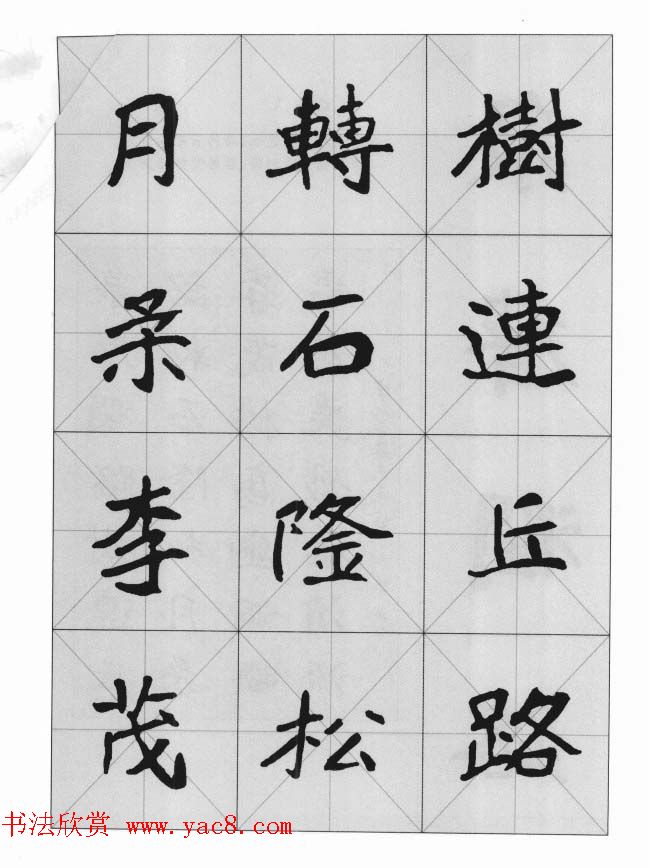 樹連丘路
轉石隆松
月柔李茂
书法欣赏 www.yac8.com